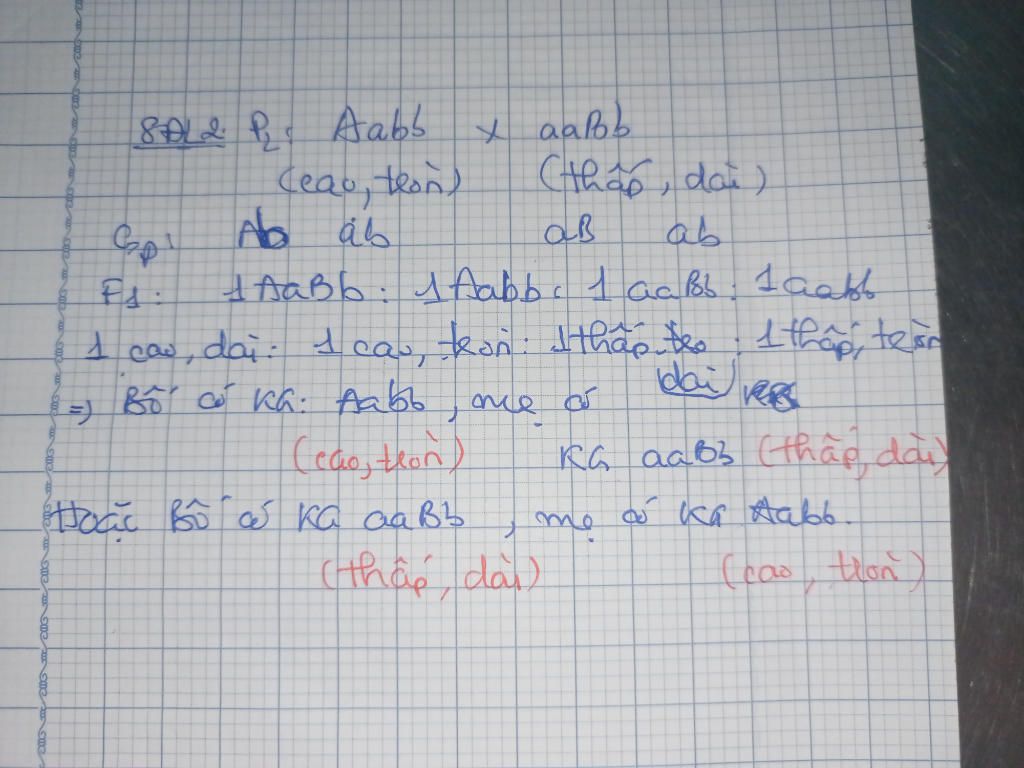 SĐL2: P2: Aabb x aaBb
(cao, tròn) (thấp, dài)
Gp: Ab ab aB ab
F1: 1AaBb : 1Aabb : 1aaBb : 1aabb
1 cao, dài : 1 cao, tròn : 1 thấp, dài : 1 thấp, tròn
=> Bố có KG: Aabb, mẹ có
(cao, tròn) KG aaBb (thấp, dài)
Hoặc Bố có KG aaBb, mẹ có KG Aabb.
(thấp, dài) (cao, tròn)